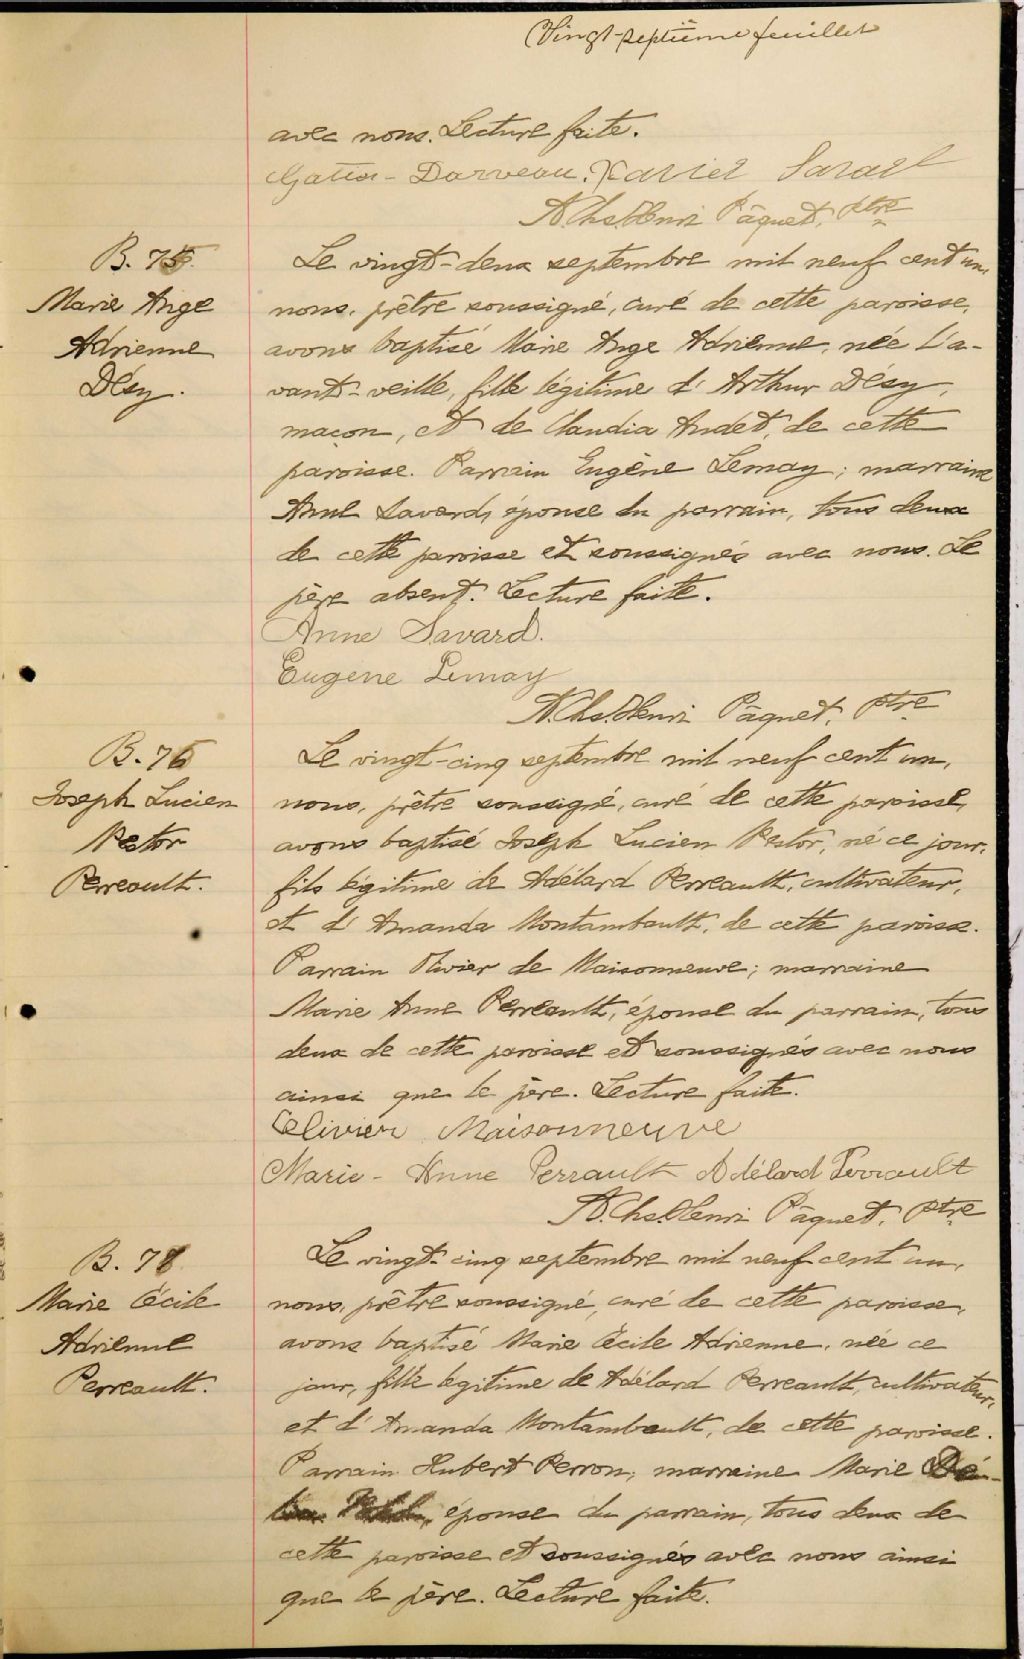 Vingt-septième feuillet
avec nous. Lecture faite.
Darveau. Xavier Savard
A. Chs. Henri Pâquet, Ptre
B. 75.
Marie Ange
Adrienne
Désy.
Le vingt-deux septembre mil neuf cent un,
nous, prêtre soussigné, curé de cette paroisse,
avons baptisé Marie Ange Adrienne, née l'a-
vant-veille, fille légitime d'Arthur Désy,
maçon, et de Claudia Audet, de cette
paroisse. Parrain Eugène Lemay; marraine
Anne Savard, épouse du parrain, tous deux
de cette paroisse et soussignés avec nous. Le
père absent. Lecture faite.
Anne Savard.
Eugene Lemay
A. Chs. Henri Pâquet, Ptre
B. 76
Joseph Lucien
Nestor
Perreault.
Le vingt-cinq septembre mil neuf cent un,
nous, prêtre soussigné, curé de cette paroisse,
avons baptisé Joseph Lucien Nestor, né ce jour,
fils légitime de Adélard Perreault, cultivateur,
et d'Amanda Montambault, de cette paroisse.
Parrain Olivier de Maisonneuve; marraine
Marie Anne Perreault, épouse du parrain, tous
deux de cette paroisse et soussignés avec nous
ainsi que le père. Lecture faite.
Olivier Maisonneuve
Marie-Anne Perrault Adélard Perrault
A. Chs. Henri Pâquet, Ptre
B. 78
Marie Cécile
Adrienne
Perreault.
Le vingt-cinq septembre mil neuf cent un,
nous, prêtre soussigné, curé de cette paroisse,
avons baptisé Marie Cécile Adrienne, née ce
jour, fille légitime de Adélard Perreault, cultivateur,
et d'Amanda Montambault, de cette paroisse.
Parrain Hubert Perron; marraine Marie
épouse du parrain, tous deux de
cette paroisse et soussignés avec nous ainsi
que le père. Lecture faite.